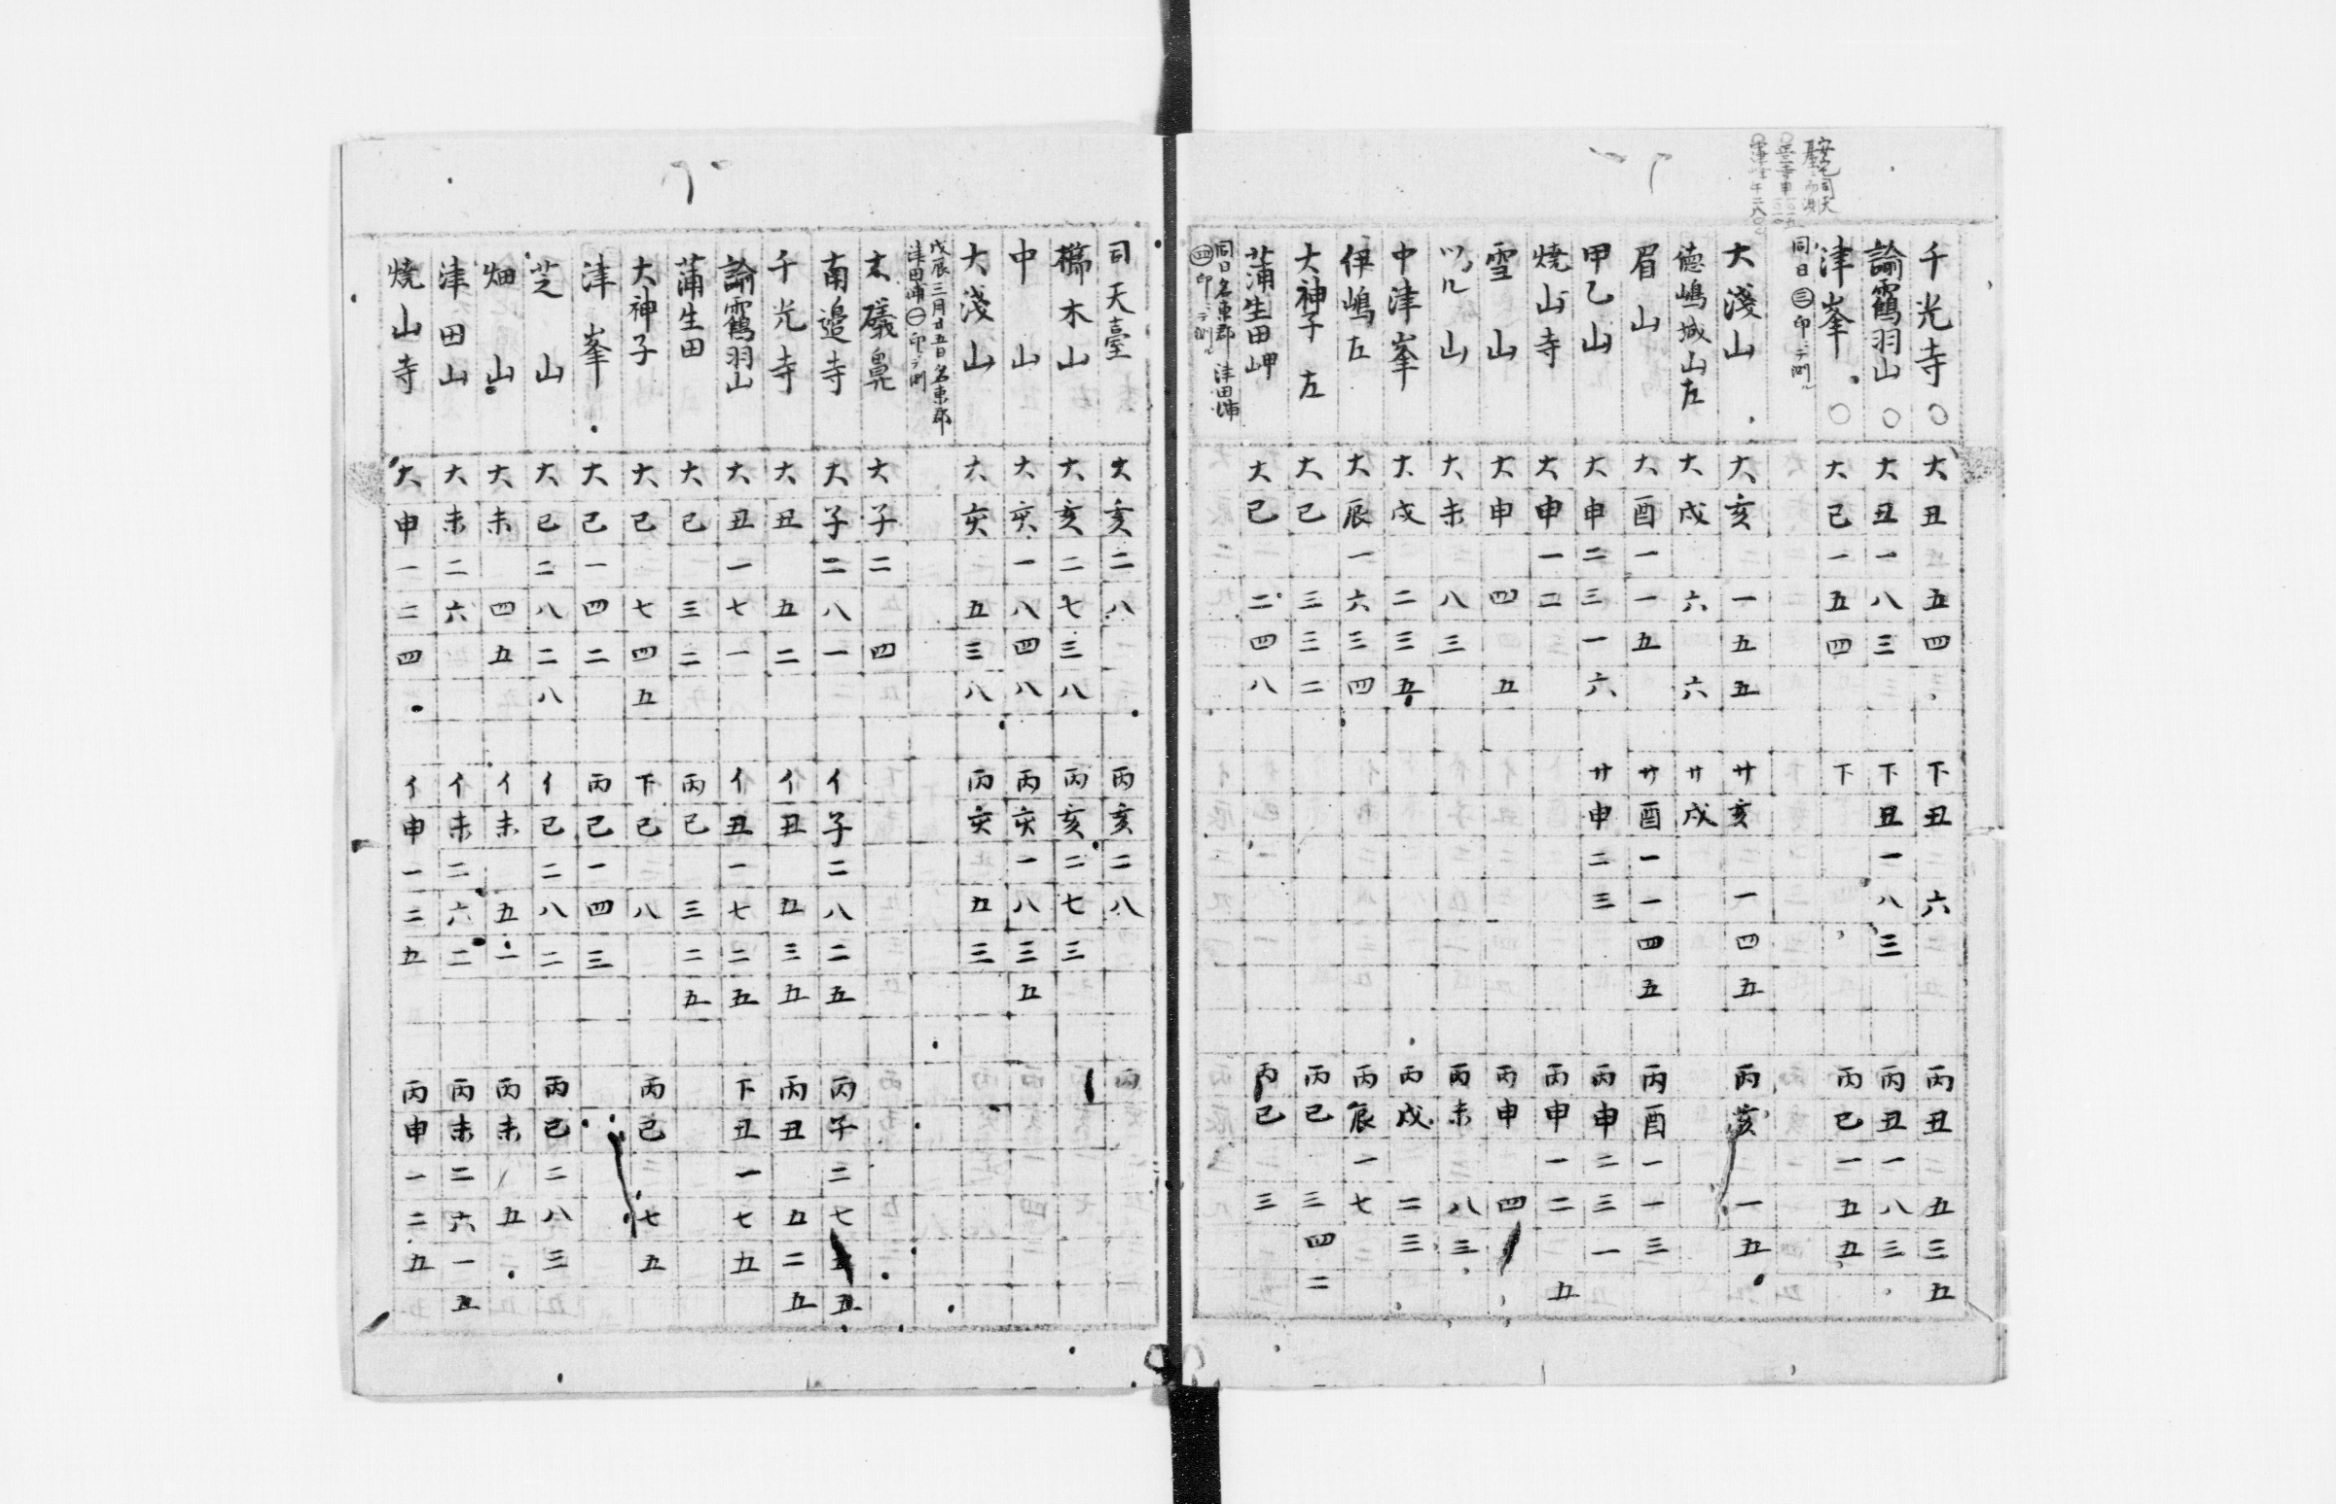 千光寺〇 大丑 五四 下丑 六 丙丑 五三五
諭霍鳥羽山〇 大丑一八三 下丑一八三 丙丑一八三
津峯〇 大巳一五四 下 丙巳一五五
同日㊂印ニテ測ル
大淺山 大亥 一五五 廿亥 一四五 丙亥 一五
徳嶋城山左 大戌 六 六 廿戌
眉山 大酉一一五 廿酉一一四五 丙酉一一三
甲乙山 大申二三一六 廿申二三 丙申二三一
燒山寺 大申一二 丙申一二 五
雪山 大申 四 五 丙申 四
ツル山 大未 八三 丙未 八三
中津峯 大戌 二三五 丙戌 二三
伊嶋左 大辰一六三四 丙辰一七
大神子左 大巳 三三二 丙巳 三四二
蒲生田岬 大巳 二四八 丙巳 三
同日名東郡津田浦
㊃印ニテ測ル
司天臺 大亥二八 丙亥二八 丙
檎木山 大亥二七三八 丙亥二七三
中山 大亥一八四八 丙亥一八三五
大淺山 大亥 五三八 丙亥 五三
戊辰三月廿五日名東郡
津田浦㊀印ニテ測
大礒鼻 大子二 四
南邉寺 大子二八一 イ子二八二五 丙子二七五五
千光寺 大丑 五二 イ丑 五三五 丙丑 五二五
諭霍鳥羽山 大丑一七一 イ丑一七二五 下丑一七五
蒲生田 大巳 三二 丙巳 三二五
大神子 大巳 七四五 下巳 八 丙巳 七五
津峯 大巳一四二 丙巳一四三
芝山 大巳二八二八 イ巳二八二 丙巳二八三
畑山 大未 四五 イ未 五一 丙未 五
津田山 大未二六 イ未二六二 丙未二六一五
燒山寺 大申一二四 イ申一二五 丙申一二五